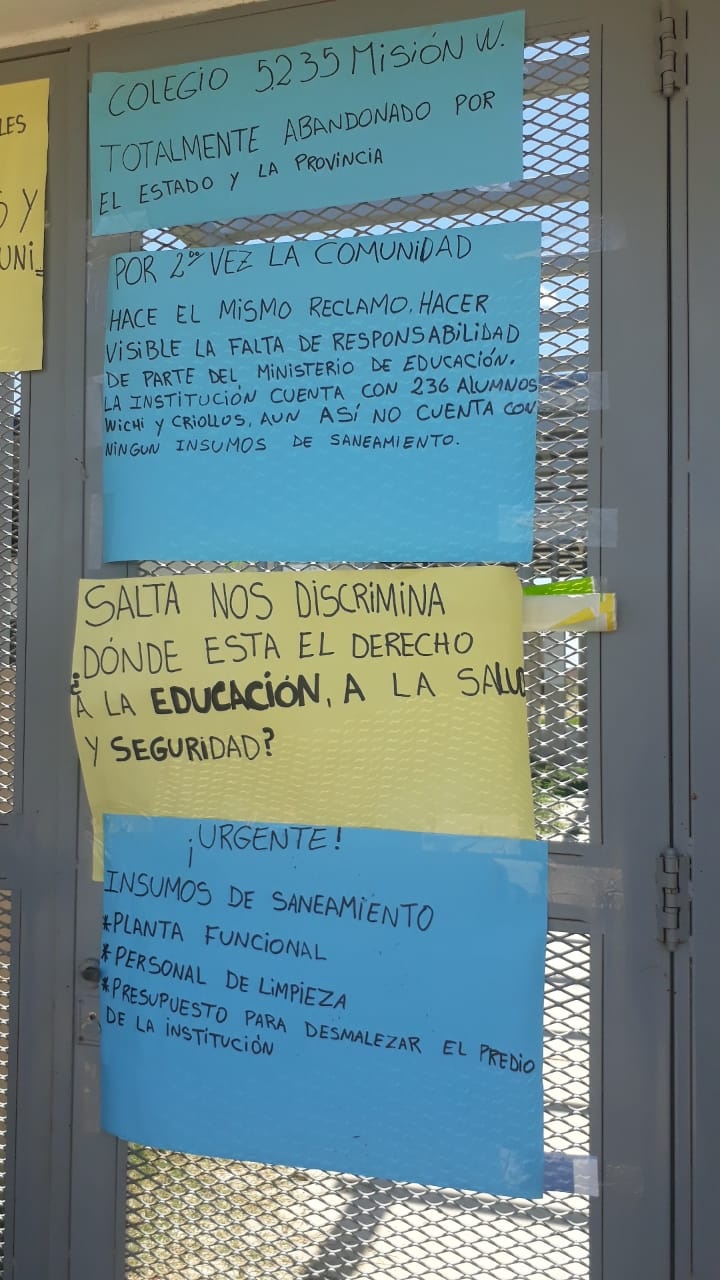 LES
S Y
UNI_
COLEGIO 5235 MISIÓN W.
TOTALMENTE ABANDONADO POR
EL ESTADO Y LA PROVINCIA
POR 2da VEZ LA COMUNIDAD
HACE EL MISMO RECLAMO. HACER
VISIBLE LA FALTA DE RESPONSABILIDAD
DE PARTE DEL MINISTERIO DE EDUCACIÓN.
LA INSTITUCIÓN CUENTA CON 236 ALUMNOS
WICHI Y CRIOLLOS, AUN ASÍ NO CUENTA CON
NINGUN INSUMOS DE SANEAMIENTO.
SALTA NOS DISCRIMINA
¿DÓNDE ESTA EL DERECHO
A LA EDUCACIÓN, A LA SALUD
Y SEGURIDAD?
¡URGENTE!
INSUMOS DE SANEAMIENTO
*PLANTA FUNCIONAL
*PERSONAL DE LIMPIEZA
*PRESUPUESTO PARA DESMALEZAR EL PREDIO
DE LA INSTITUCIÓN